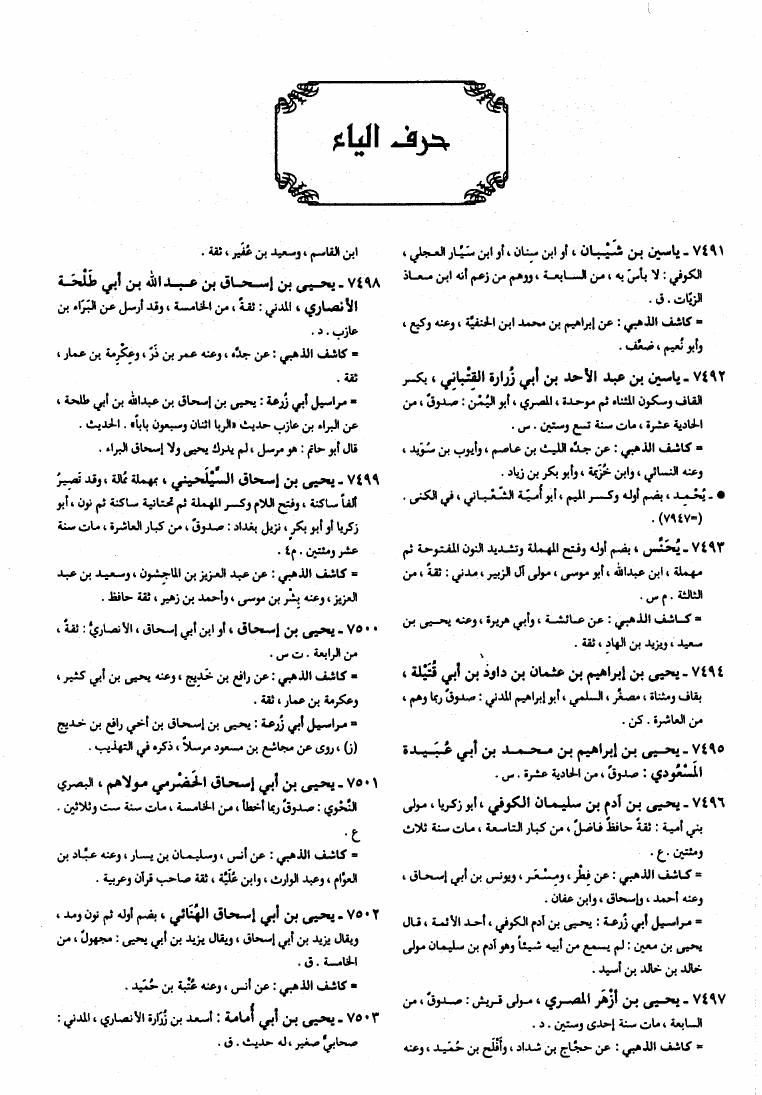 حرف الياء
٧٤٩١ ـ ياسين بن شَيْبان ، أو ابن سِنان ، أو ابن سَيَّار العجلي ،
الكوفي : لا بأسَ به ، من السابعة ، ووهم من زعم أنه ابن معاذ
الزيّات . ق .
= كاشف الذهبي : عن إبراهيم بن محمد ابن الحنفيَّة ، وعنه وكيع ،
وأبو نُعيم ، ضعِّف .
٧٤٩٢ ـ ياسين بن عبد الأحد بن أبي زُرارة القِتْباني ، بكسر
القاف وسكون المثناه ثم موحدة ، المصري ، أبو اليُمْن : صدوقٌ ، من
الحادية عشرة ، مات سنة تسع وستين . س .
= كاشف الذهبي : عن جدِّه الليث بن عاصم ، وأيوب بن سُوَيد ،
وعنه النسائي ، وابن خُزَيمة ، وأبو بكر بن زياد .
● ـ يُحْمِد ، بضم أوله وكسر الميم ، أبو أُميَّة الشَّعْباني ، في الكنى .
(=٧٩٤٧) .
٧٤٩٣ ـ يُحَنَّس ، بضم أوله وفتح المهملة وتشديد النون المفتوحة ثم
مهملة ، ابن عبدالله ، أبو موسى ، مولى آل الزبير ، مدني : ثقةٌ ، من
الثالثة . م س .
= كاشف الذهبي : عن عائشة ، وأبي هريرة ، وعنه يحيى بن
سعيد ، ويزيد بن الهادِ ، ثقة .
٧٤٩٤ ـ يحيى بن إبراهيم بن عثمان بن داود بن أبي قُتَيْلة ،
بقاف ومثناة ، مصغّر ، السلمي ، أبو إبراهيم المدني : صدوقٌ ربما وهم ،
من العاشرة . كن .
٧٤٩٥ ـ يحيى بن إبراهيم بن محمد بن أبي عُبَيدة
المَسْعُودي : صدوقٌ ، من الحادية عشرة . س .
٧٤٩٦ ـ يحيى بن آدم بن سليمان الكوفي ، أبو زكريا ، مولى
بني أمية : ثقةٌ حافظٌ فاضلٌ ، من كبار التاسعة ، مات سنة ثلاث
ومئتين . ع .
= كاشف الذهبي : عن فِطْر ، ومِسْعَر ، ويونس بن أبي إسحاق ،
وعنه أحمد ، وإسحاق ، وابن عفان .
= مراسيل أبي زُرعة : يحيى بن آدم الكوفي ، أحد الأئمة ، قال
يحيى بن معين : لم يسمع من أبيه شيئاً وهو آدم بن سليمان مولى
خالد بن خالد بن أسيد .
٧٤٩٧ ـ يحيى بن أزْهَر المصري ، مولى قريش : صدوقٌ ، من
السابعة ، مات سنة إحدى وستين . د .
= كاشف الذهبي : عن حجَّاج بن شداد ، وأَفْلَح بن حُمَيد ، وعنه
ابن القاسم ، وسعيد بن عُفَير ، ثقة .
٧٤٩٨ ـ يحيى بن إسحاق بن عبدالله بن أبي طَلْحَة
الأنصاري ، المدني : ثقةٌ ، من الخامسة ، وقد أرسل عن البَرَاء بن
عازب . د .
= كاشف الذهبي : عن جدِّه ، وعنه عمر بن ذَرّ ، وعِكْرِمة بن عمار ،
ثقة .
= مراسيل أبي زُرعة : يحيى بن إسحاق بن عبدالله بن أبي طلحة ،
عن البراء بن عازب حديث «الربا اثنان وسبعون باباً» . الحديث .
قال أبو حاتم : هو مرسل ، لم يدرك يحيى ولا إسحاق البراء .
٧٤٩٩ ـ يحيى بن إسحاق السَّيْلَحيني ، بمهملة مُمَالة ، وقد تَصيرُ
ألفاً ساكنة ، وفتح اللام وكسر المهملة ثم تحتانية ساكنة ثم نون ، أبو
زكريا أو أبو بكرٍ ، نزيل بغداد : صدوقٌ ، من كبار العاشرة ، مات سنة
عشر ومئتين . م٤ .
= كاشف الذهبي : عن عبد العزيز بن الماجشون ، وسعيد بن عبد
العزيز ، وعنه بِشْر بن موسى ، وأحمد بن زهير ، ثقة حافظ .
٧٥٠٠ ـ يحيى بن إسحاق ، أو ابن أبي إسحاق ، الأنصاريُّ : ثقةٌ ،
من الرابعة . ت س .
= كاشف الذهبي : عن رافع بن خَدِيج ، وعنه يحيى بن أبي كثير ،
وعكرمة بن عمار ، ثقة .
= مراسيل أبي زُرعة : يحيى بن إسحاق بن أخي رافع بن خديج
(ز) ، روى عن مجاشع بن مسعود مرسلاً ، ذكره في التهذيب .
٧٥٠١ ـ يحيى بن أبي إسحاق الحَضْرمي مولاهم ، البصري
النَّحْوي : صدوقٌ ربما أخطأ ، من الخامسة ، مات سنة ست وثلاثين .
ع .
= كاشف الذهبي : عن أنس ، وسليمان بن يسار ، وعنه عبَّاد بن
العوّام ، وعبد الوارث ، وابن عُلَيَّة ، ثقة صاحب قرآن وعربية .
٧٥٠٢ ـ يحيى بن أبي إسحاق الهُنَائي ، بضم أوله ثم نون ومد ،
ويقال يزيد بن أبي إسحاق ، ويقال يزيد بن أبي يحيى : مجهولٌ ، من
الخامسة . ق .
= كاشف الذهبي : عن أنس ، وعنه عُتْبة بن حُمَيد .
٧٥٠٣ ـ يحيى بن أبي أُمامة : أسعد بن زُرَارة الأنصاري ، المدني :
صحابيٌّ صغير ، له حديث . ق .